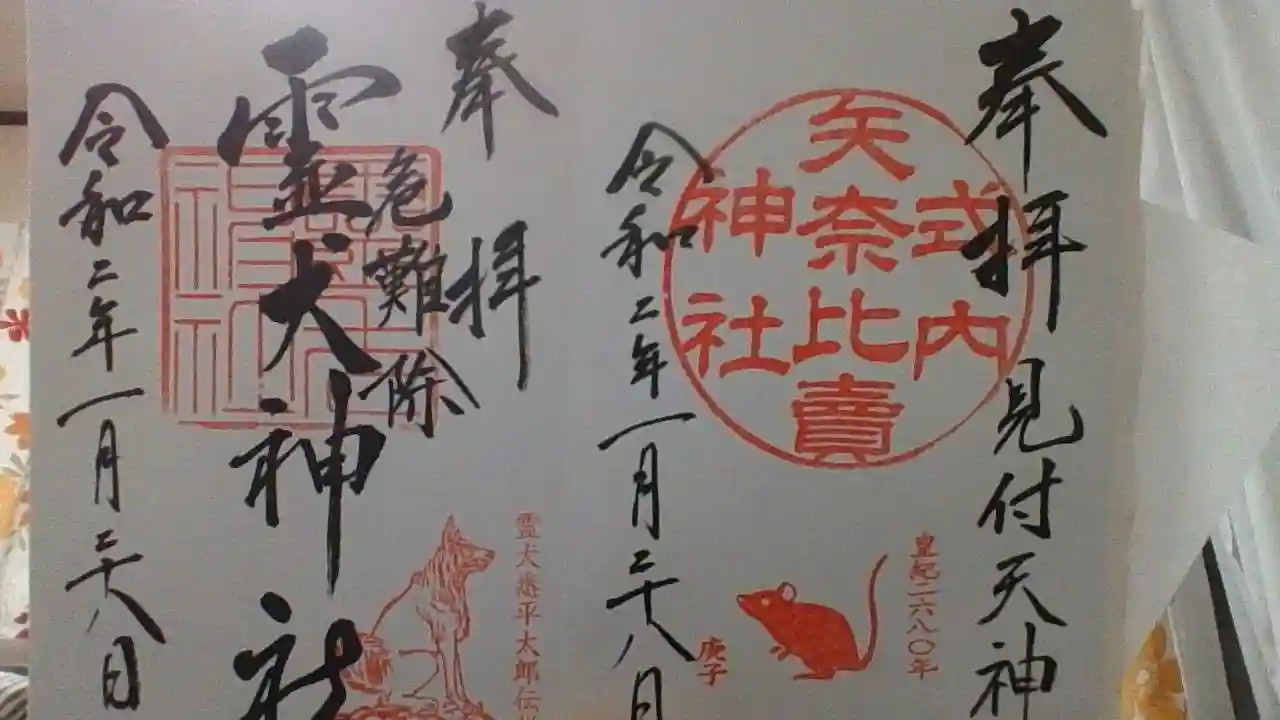 奉拝
見付天神
式内
矢奈比賣
神社
皇紀二六八〇年
庚子
令和二年一月二十八日
奉拝
危難除
靈犬神社
霊犬悉平太郎伝
令和二年一月二十八日